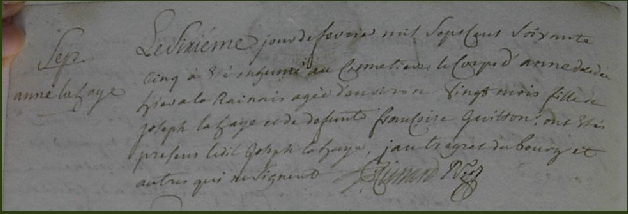 Sep.
anne la Faye
Le Sixiéme jour de fevrier mil Sept Cent Soixante
Cinq a été inhumé au Cimetiere le Corps d'anne decedée
hier a la agée d'environ Vingt mois fille de
joseph la faye et de defunte francoise Guitton, ont étés
presens ledit joseph la faye, du bourg et
autres qui ne Signent